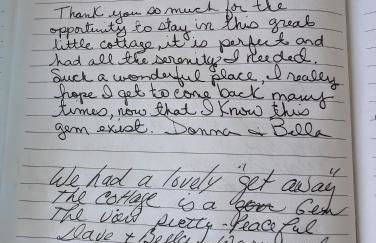 Thank you so much for the
opportunity to stay in this great
little cottage, it is perfect and
had all the serenity I needed.
Such a wonderful place, I really
hope I get to come back many
times, now that I know this
gem exist. Donna & Bella
We had a lovely "get away"
The cottage is a Gem
The view pretty - Peaceful
Dave + Bella